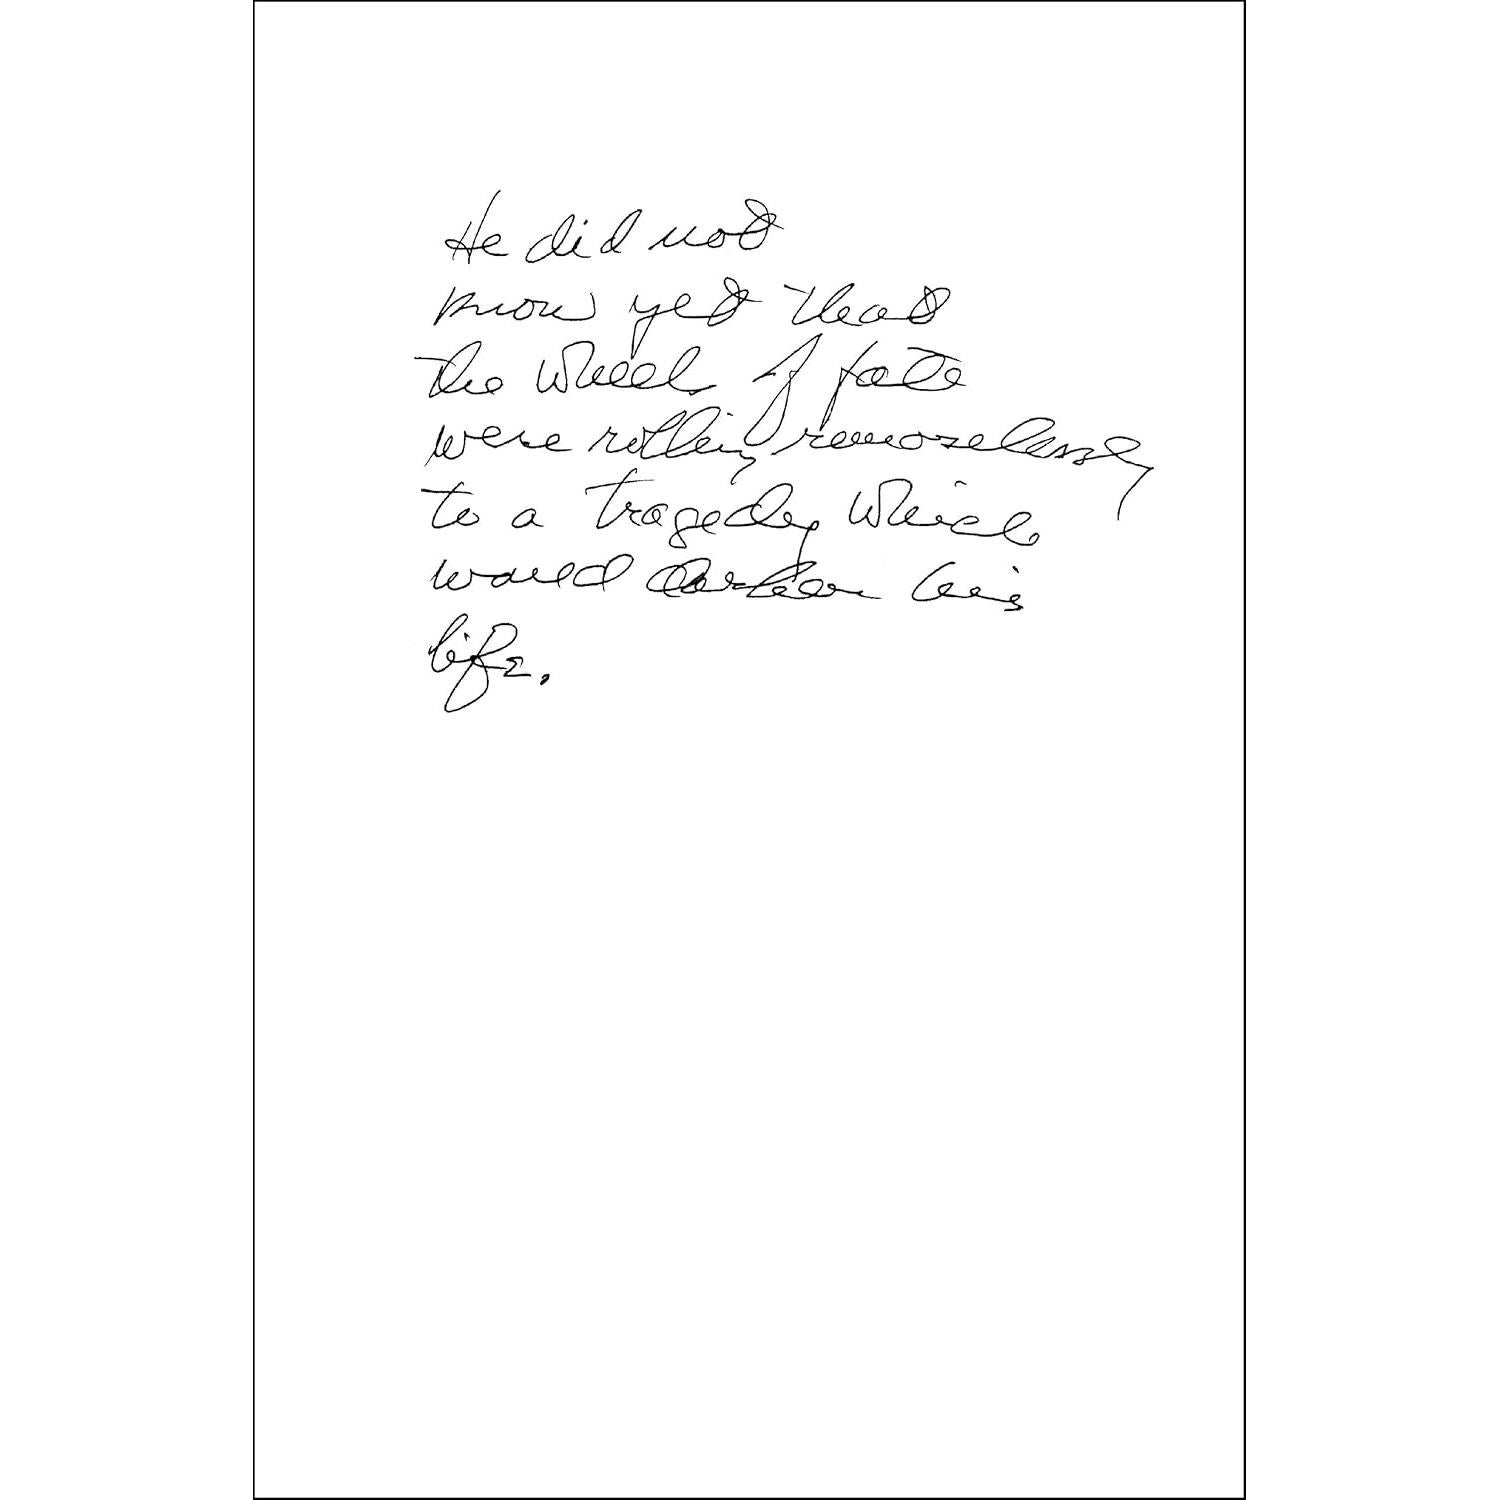 He did not
know yet that
the wheels of fate
were rolling remorselessly
to a tragedy which
would darken his
life.